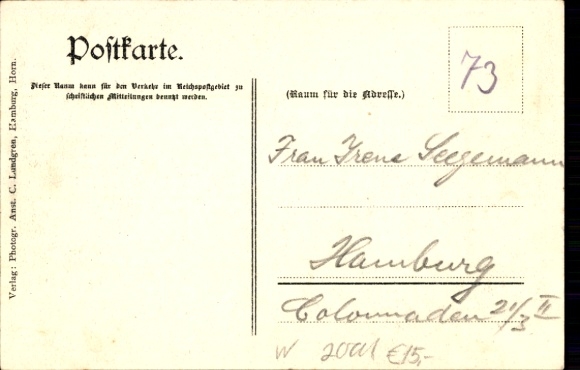 Postkarte.
Dieser Raum kann für den Verkehr im Reichspostgebiet zu
schriftlichen Mitteilungen benutzt werden.
(Raum für die Adresse.)
73
Frau Irene Seegemann
Hamburg
Colonnaden 21/3 II
W €15,-
Verlag: Photogr. Anst. C. Lundgren, Hamburg, Horn.